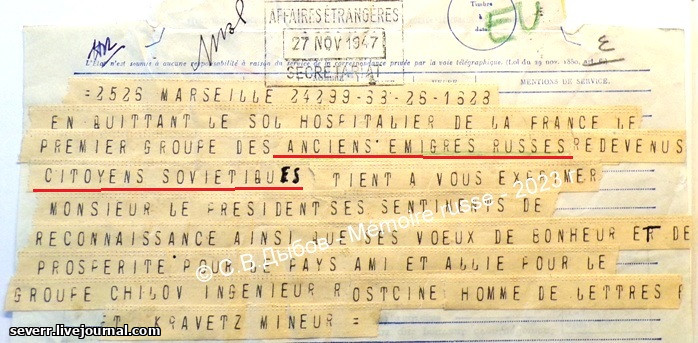 Timbre
à
date:
EU
AFFAIRES ETRANGÈRES
27 NOV 1947
SECRETARIAT
L'État n'est soumis à aucune responsabilité à raison du service de la correspondance privée par la voie télégraphique. (Loi du 29 nov. 1850, art. 6.)
MENTIONS DE SERVICE.
=2525 MARSEILLE 24299-53-26-1623
EN QUITTANT LE SOL HOSPITALIER DE LA FRANCE LE
PREMIER GROUPE DES ANCIENS EMIGRES RUSSES REDEVENUS
CITOYENS SOVIETIQUES TIENT A VOUS EXPRIMER
MONSIEUR LE PRESIDENT SES SENTIMENTS DE
RECONNAISSANCE AINSI QUE SES VOEUX DE BONHEUR ET DE
PROSPERITE POUR LE PAYS AMI ET ALLIE POUR LE
GROUPE CHILOV INGENIEUR ROSTCINE HOMME DE LETTRES
ET KRAVETZ MINEUR =
© С.В.Дыбов - Mémoire russe - 2023
severr.livejournal.com